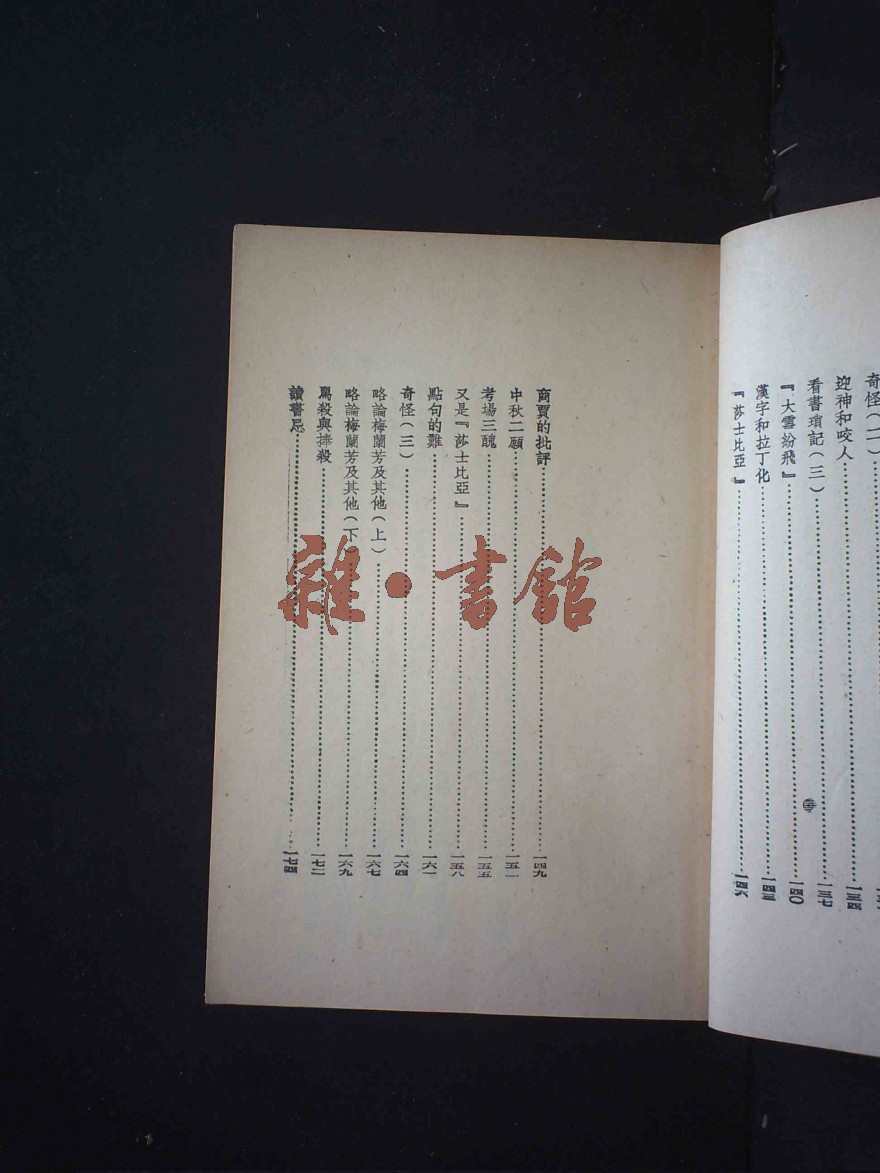 奇怪（二）
迎神和咬人……一三四
看書瑣記（三）……一三七
『大雪紛飛』……一四〇
漢字和拉丁化……一四三
『莎士比亞』……一四六
三
商賈的批評……一四九
中秋二願……一五二
考場三醜……一五五
又是『莎士比亞』……一五八
點句的難……一六一
奇怪（三）……一六四
略論梅蘭芳及其他（上）……一六七
略論梅蘭芳及其他（下）……一六九
罵殺與捧殺……一七二
讀書忌……一七四
雜·書館